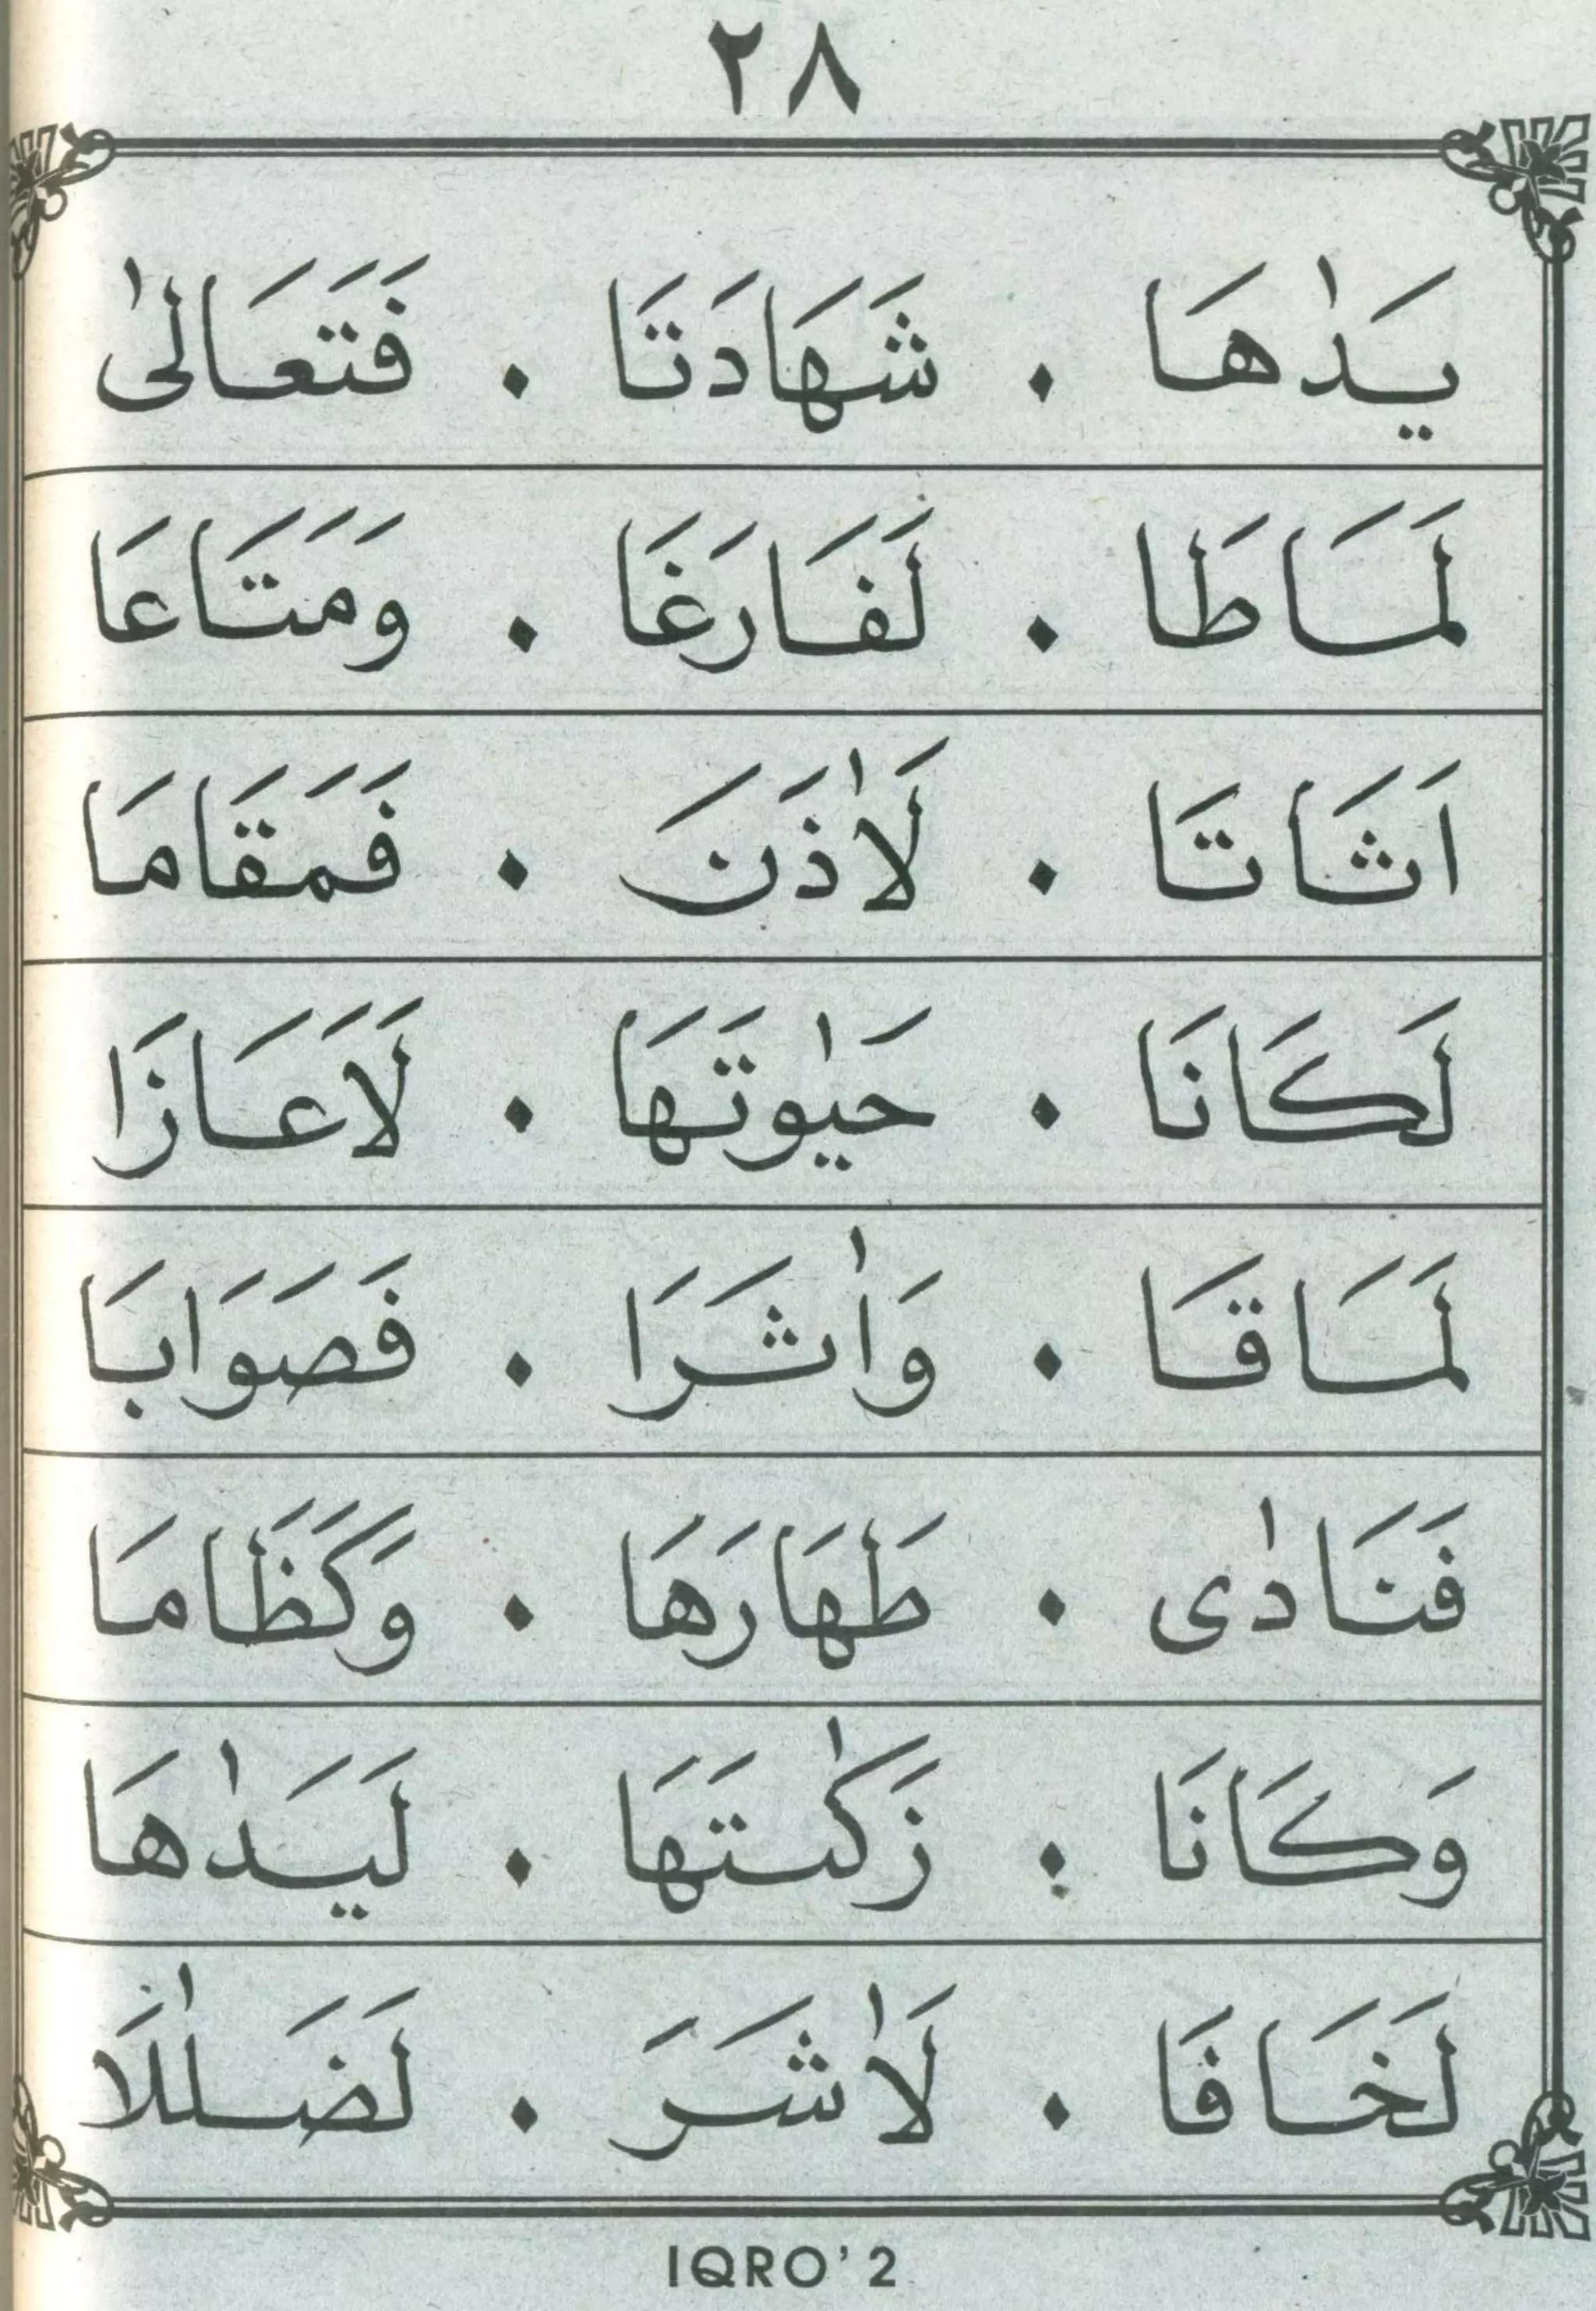 ٢٨
يَدٰهَا . شَهَادَتَا . فَتَعَالٰى
لَمَاطَا . لَفَارَغَا . وَمَتَاعَا
اَثَاتَا . لَاٰذَنَ . فَمَقَامَا
لَكَانَا . حَيٰوتَهَا . لَاَعَازَا
لَمَاقَا . وَاٰثَرَا . فَصَوَابَا
فَنَادٰى . طَهَارَهَا . وَكَظَامَا
وَكَانَا . زَكٰتَهَا . لَيَدٰهَا
لَخَافَا . لَاٰشَرَ . لَضَلٰلَا
IQRO' 2